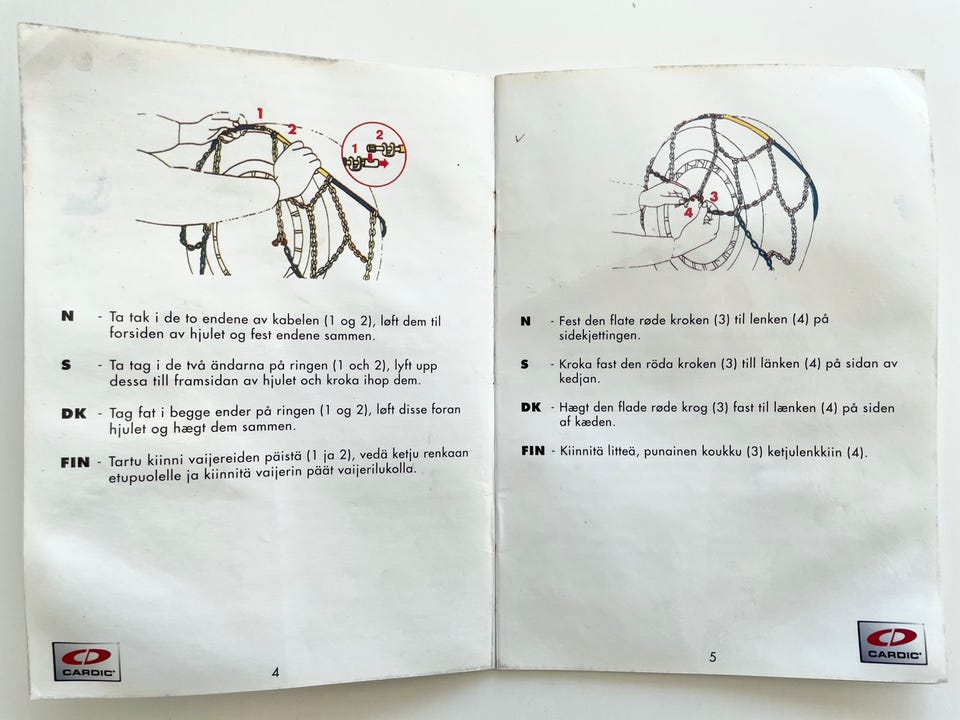 1
2
1
2
N - Ta tak i de to endene av kabelen (1 og 2), løft dem til
forsiden av hjulet og fest endene sammen.
S - Ta tag i de två ändarna på ringen (1 och 2), lyft upp
dessa till framsidan av hjulet och kroka ihop dem.
DK - Tag fat i begge ender på ringen (1 og 2), løft disse foran
hjulet og hægt dem sammen.
FIN - Tartu kiinni vaijereiden päistä (1 ja 2), vedä ketju renkaan
etupuolelle ja kiinnitä vaijerin päät vaijerilukolla.
CARDIC
4
3
4
N - Fest den flate røde kroken (3) til lenken (4) på
sidekjettingen.
S - Kroka fast den röda kroken (3) till länken (4) på sidan av
kedjan.
DK - Hægt den flade røde krog (3) fast til lænken (4) på siden
af kæden.
FIN - Kiinnitä litteä, punainen koukku (3) ketjulenkkiin (4).
5
CARDIC